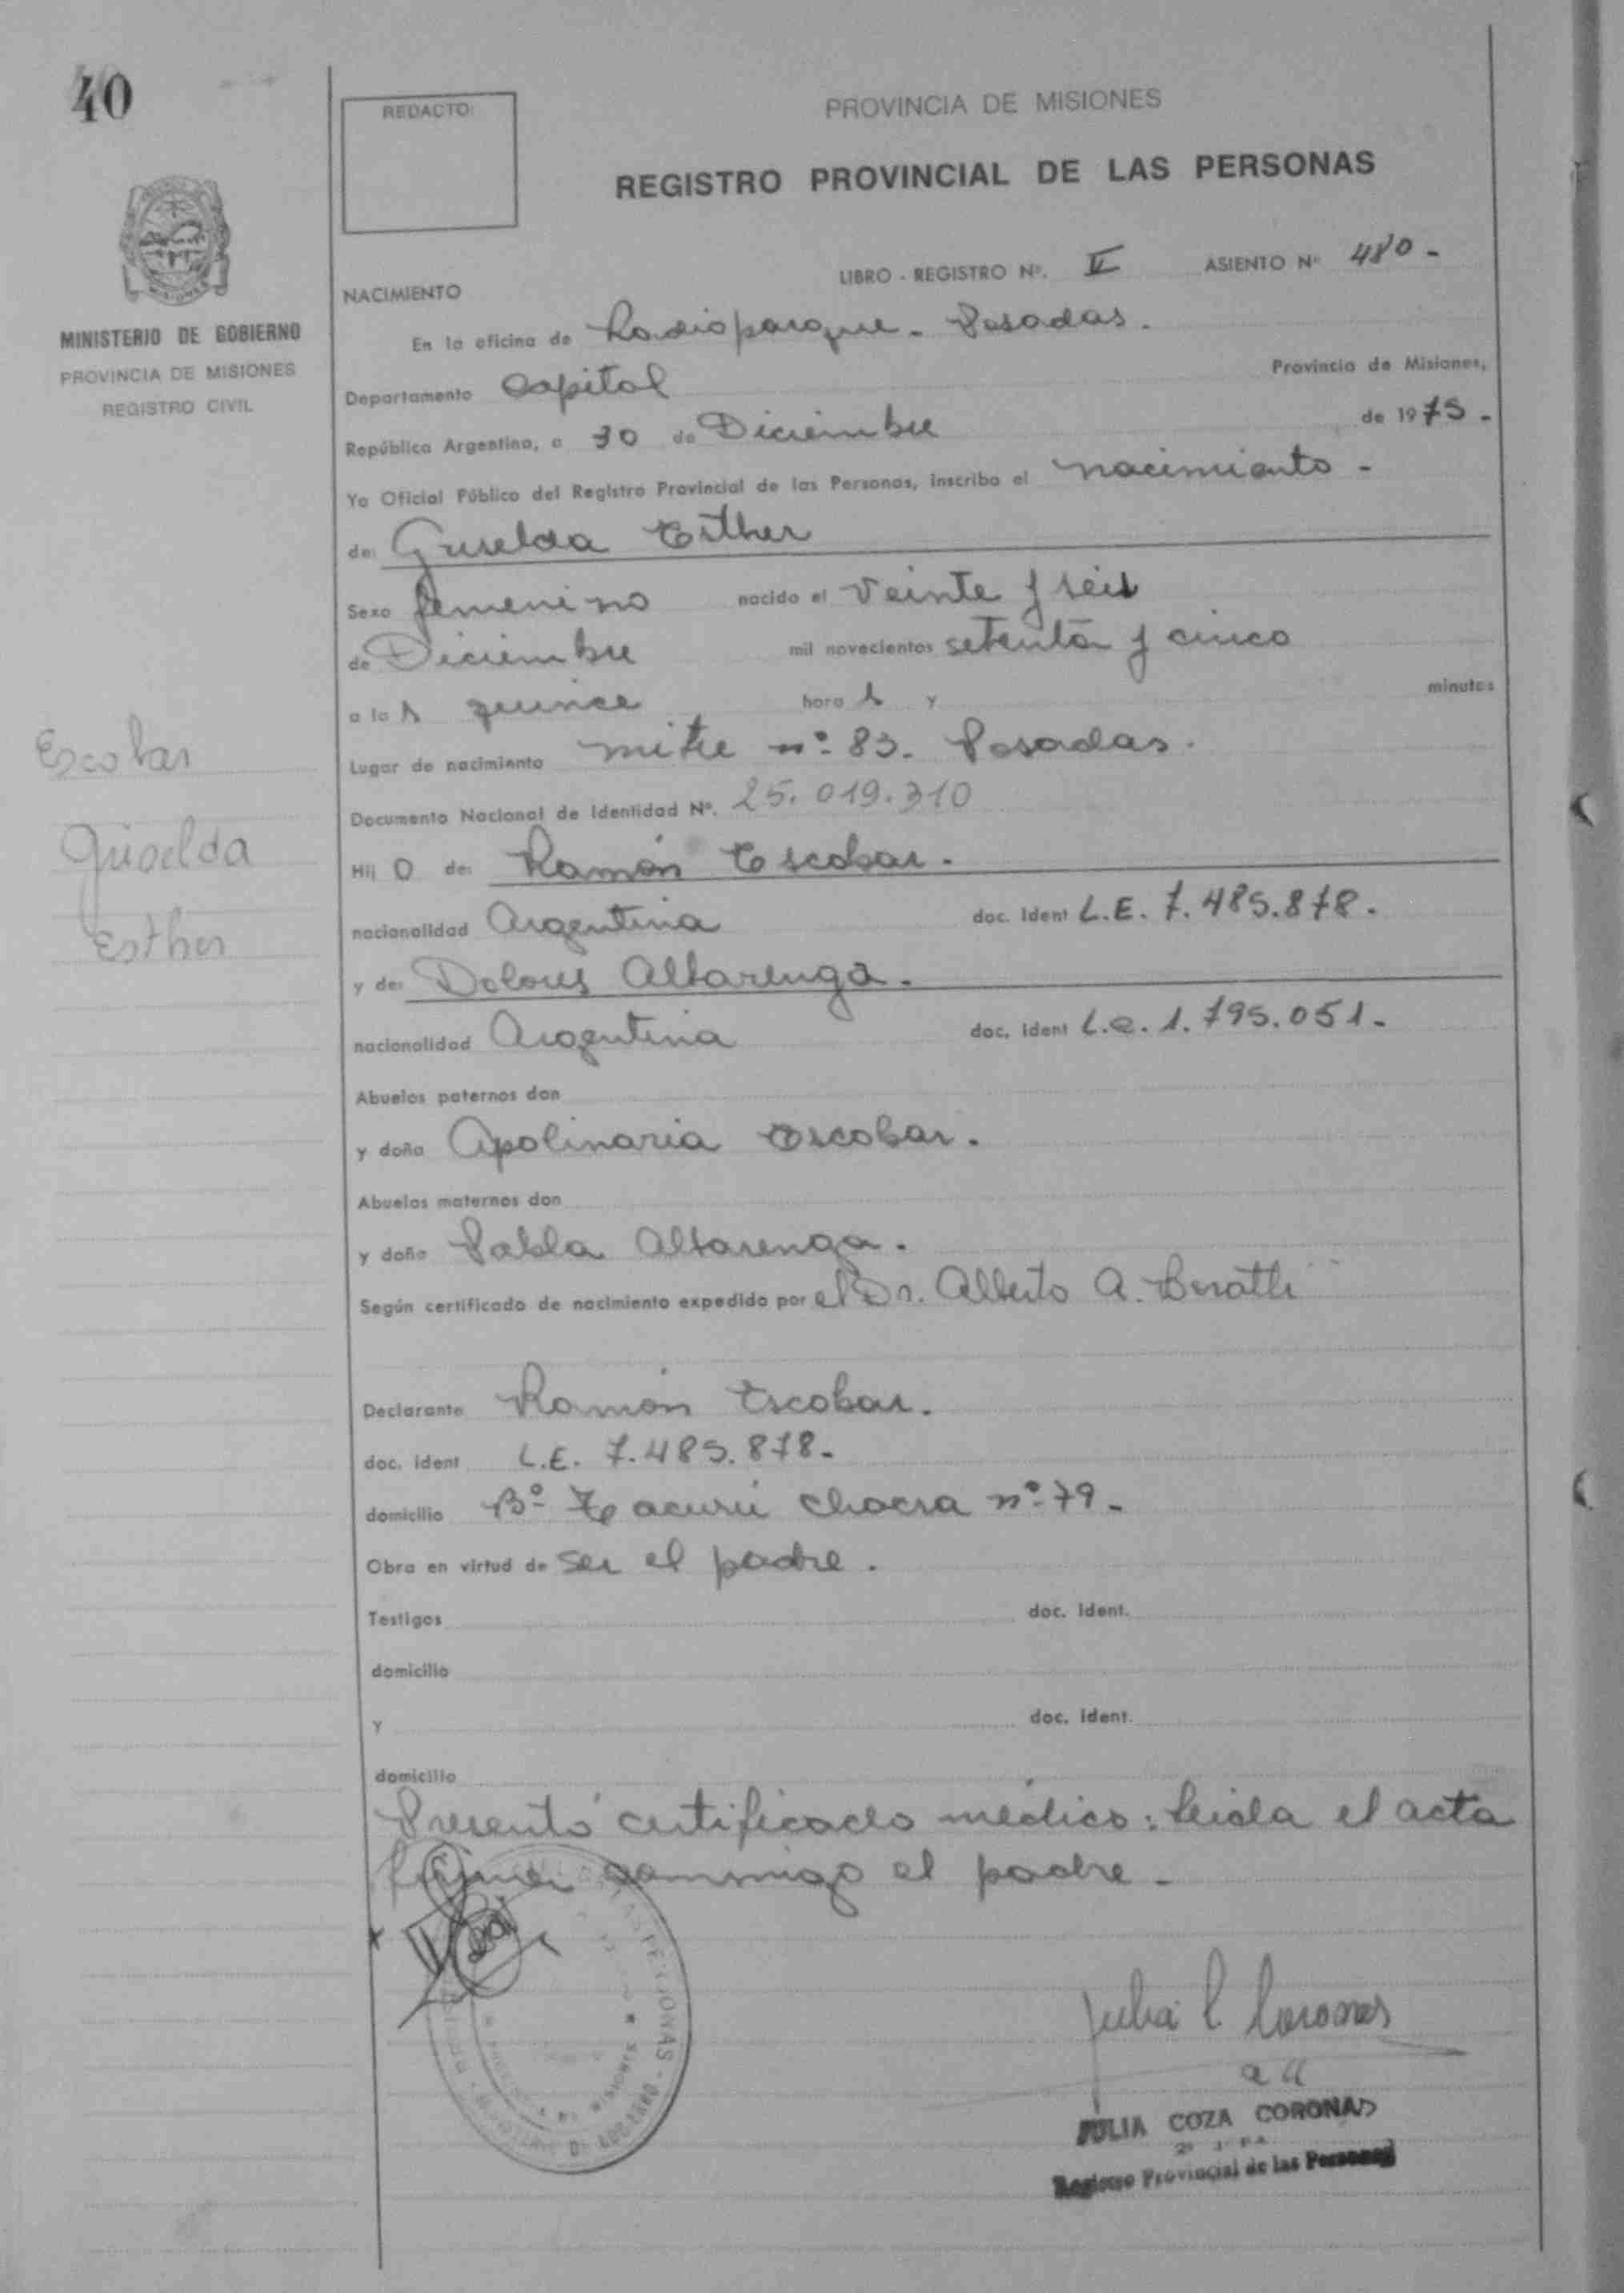 40
REDACTO:
PROVINCIA DE MISIONES
REGISTRO PROVINCIAL DE LAS PERSONAS
LIBRO - REGISTRO Nº. II ASIENTO Nº 480 -
NACIMIENTO
MISIONES
MINISTERIO DE GOBIERNO
PROVINCIA DE MISIONES
REGISTRO CIVIL
En la oficina de Radioparque - Posadas.
Departamento Capital Provincia de Misiones,
República Argentina, a 30 de Diciembre de 1975 -
Yo Oficial Público del Registro Provincial de las Personas, inscribo el nacimiento -
de: Griselda Esther
Sexo femenino nacido el veinte y seis
de Diciembre mil novecientos setenta y cinco
a las quince hora s y minutos
Lugar de nacimiento mitre nº 83. Posadas.
Documento Nacional de Identidad Nº. 25.019.310
Escobar
Griselda
Esther
Hij o de: Ramón Escobar.
nacionalidad Argentina doc. Ident L.E. 7.485.878.
y de: Dolores Albarenga.
nacionalidad Argentina doc. Ident L.C. 1.795.051.
Abuelos paternos don
y doña Apolinaria Escobar.
Abuelos maternos don
y doña Pabla Albarenga.
Según certificado de nacimiento expedido por el Dr. Alberto A.
Declarante Ramón Escobar.
doc. ident L.E. 7.485.878.
domicilio Bº Tacurú chacra nº 79 -
Obra en virtud de ser el padre.
Testigos doc. Ident.
domicilio
y doc. ident.
domicilio
Presentó certificado médico: leida el acta
firma conmigo el padre -
Julia C. Coronas
JULIA COZA CORONAS
Registro Provincial de las Personas